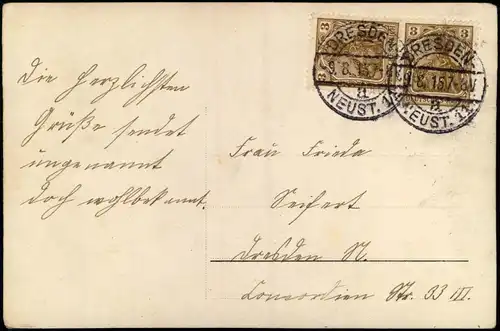 Die herzlichsten
Grüße sendet
ungenannt
doch wohlbekannt.
3 3
DRESDEN DRESDEN
9.8.15.7-8V 9.8.15.7-8V
a a
NEUST. 11. NEUST. 11.
Frau Frieda
Seifert
Dresden N.
Concordien Str. 33 III.